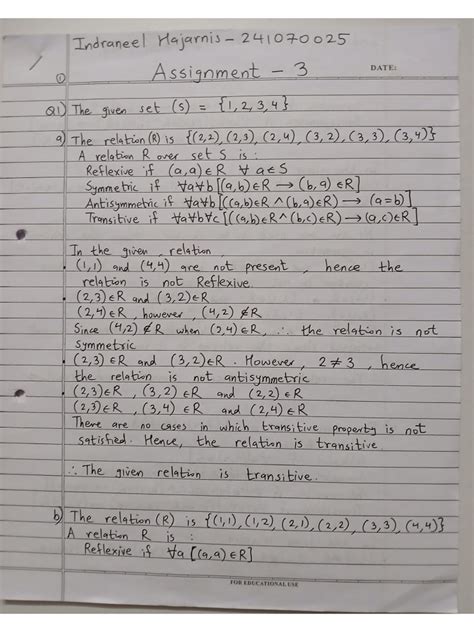 Indraneel Hajarnis - 241070025
Assignment - 3
DATE:
1
Q1) The given set (S) = {1, 2, 3, 4}
a) The relation (R) is {(2,2), (2,3), (2,4), (3,2), (3,3), (3,4)}
A relation R over set S is :
Reflexive if (a,a) ∈ R ∀ a ∈ S
Symmetric if ∀a∀b [(a,b) ∈ R → (b,a) ∈ R]
Antisymmetric if ∀a∀b [((a,b) ∈ R ∧ (b,a) ∈ R) → (a=b)]
Transitive if ∀a∀b∀c [((a,b) ∈ R ∧ (b,c) ∈ R) → (a,c) ∈ R]
In the given relation,
• (1,1) and (4,4) are not present, hence the
relation is not Reflexive.
• (2,3) ∈ R and (3,2) ∈ R
(2,4) ∈ R, however, (4,2) ∉ R
Since (4,2) ∉ R when (2,4) ∈ R, ∴ the relation is not
symmetric
• (2,3) ∈ R and (3,2) ∈ R. However, 2 ≠ 3, hence
the relation is not antisymmetric
• (2,3) ∈ R, (3,2) ∈ R and (2,2) ∈ R
(2,3) ∈ R, (3,4) ∈ R and (2,4) ∈ R
There are no cases in which transitive property is not
satisfied. Hence, the relation is transitive
∴ The given relation is transitive.
b) The relation (R) is {(1,1), (1,2), (2,1), (2,2), (3,3), (4,4)}
A relation R is :
Reflexive if ∀a [(a,a) ∈ R]
FOR EDUCATIONAL USE